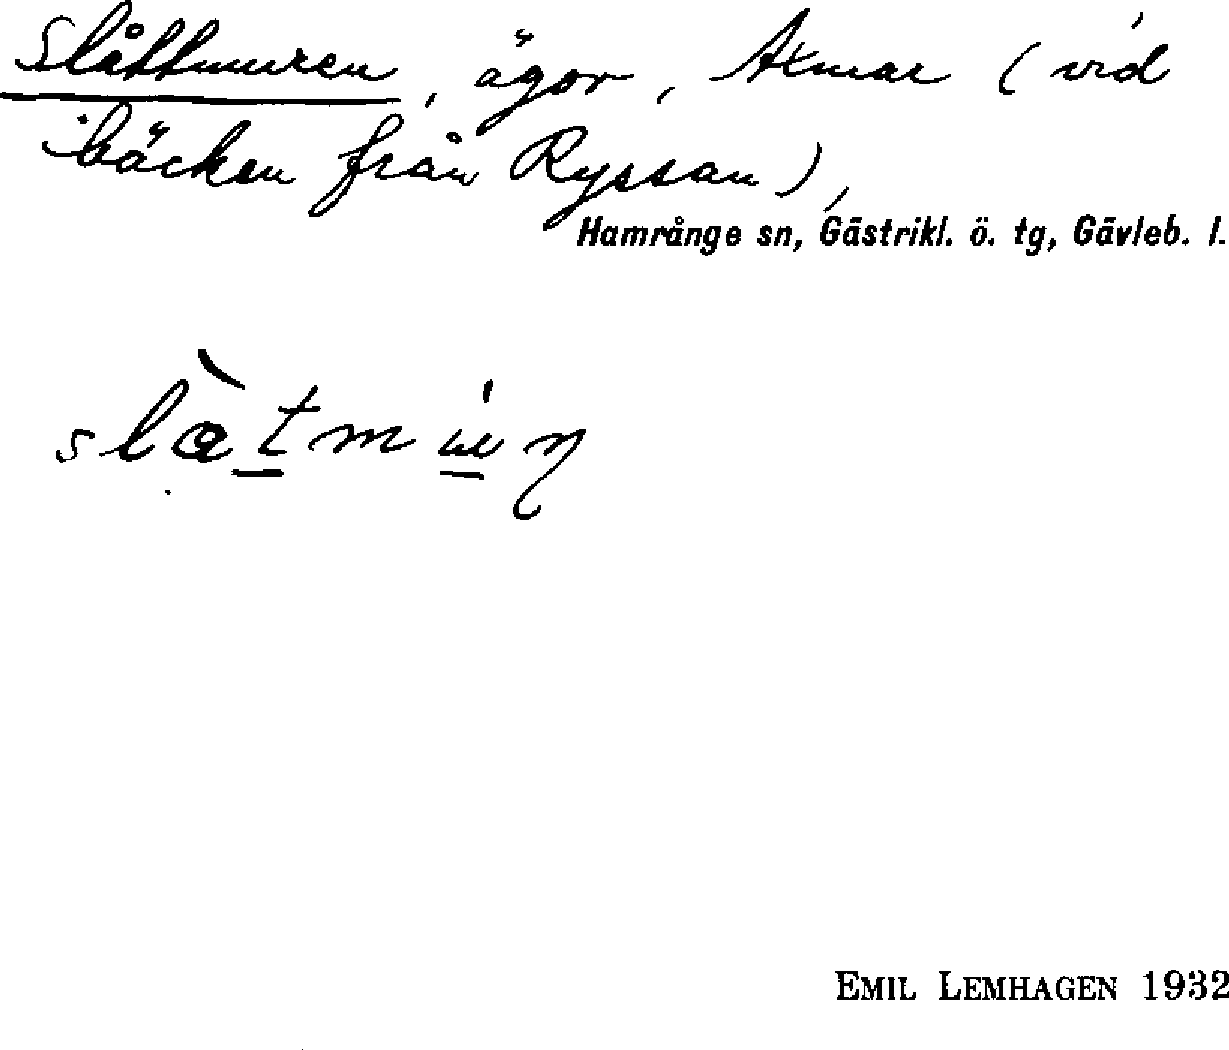 Slåttmuren, ägor, Axmar (vid
bäcken från Ryssan),
Hamrånge sn, Gästrikl. ö. tg, Gävleb. l.
EMIL LEMHAGEN 1932